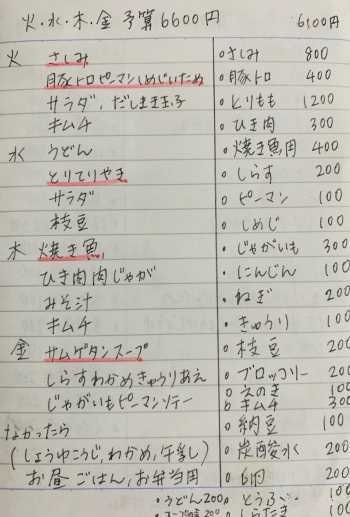 火・水・木・金 予算6600円 6100円
火 さしみ
豚トロピーマンしめじいため
サラダ、だしまき玉子
キムチ
水 うどん
とりてりやき
サラダ
枝豆
木 焼き魚
ひき肉肉じゃが
みそ汁
キムチ
金 サムゲタンスープ
しらすわかめきゅうりあえ
じゃがいもピーマンソテー
なかったら
(しょうゆこうじ、わかめ、牛
お昼ごはん、お弁当用
・さしみ 800
・豚トロ 400
・とりもも 1200
・ひき肉 300
・焼き魚用 400
・しらす 200
・ピーマン 100
・しめじ 100
・じゃがいも 300
・にんじん 100
・ねぎ 200
・きゅうり 100
・枝豆 200
・ブロッコリー 200
・えのき 100
・キムチ 300
・納豆 100
・炭酸水 200
200
・うどん200 とうふ 100
しらたき 100